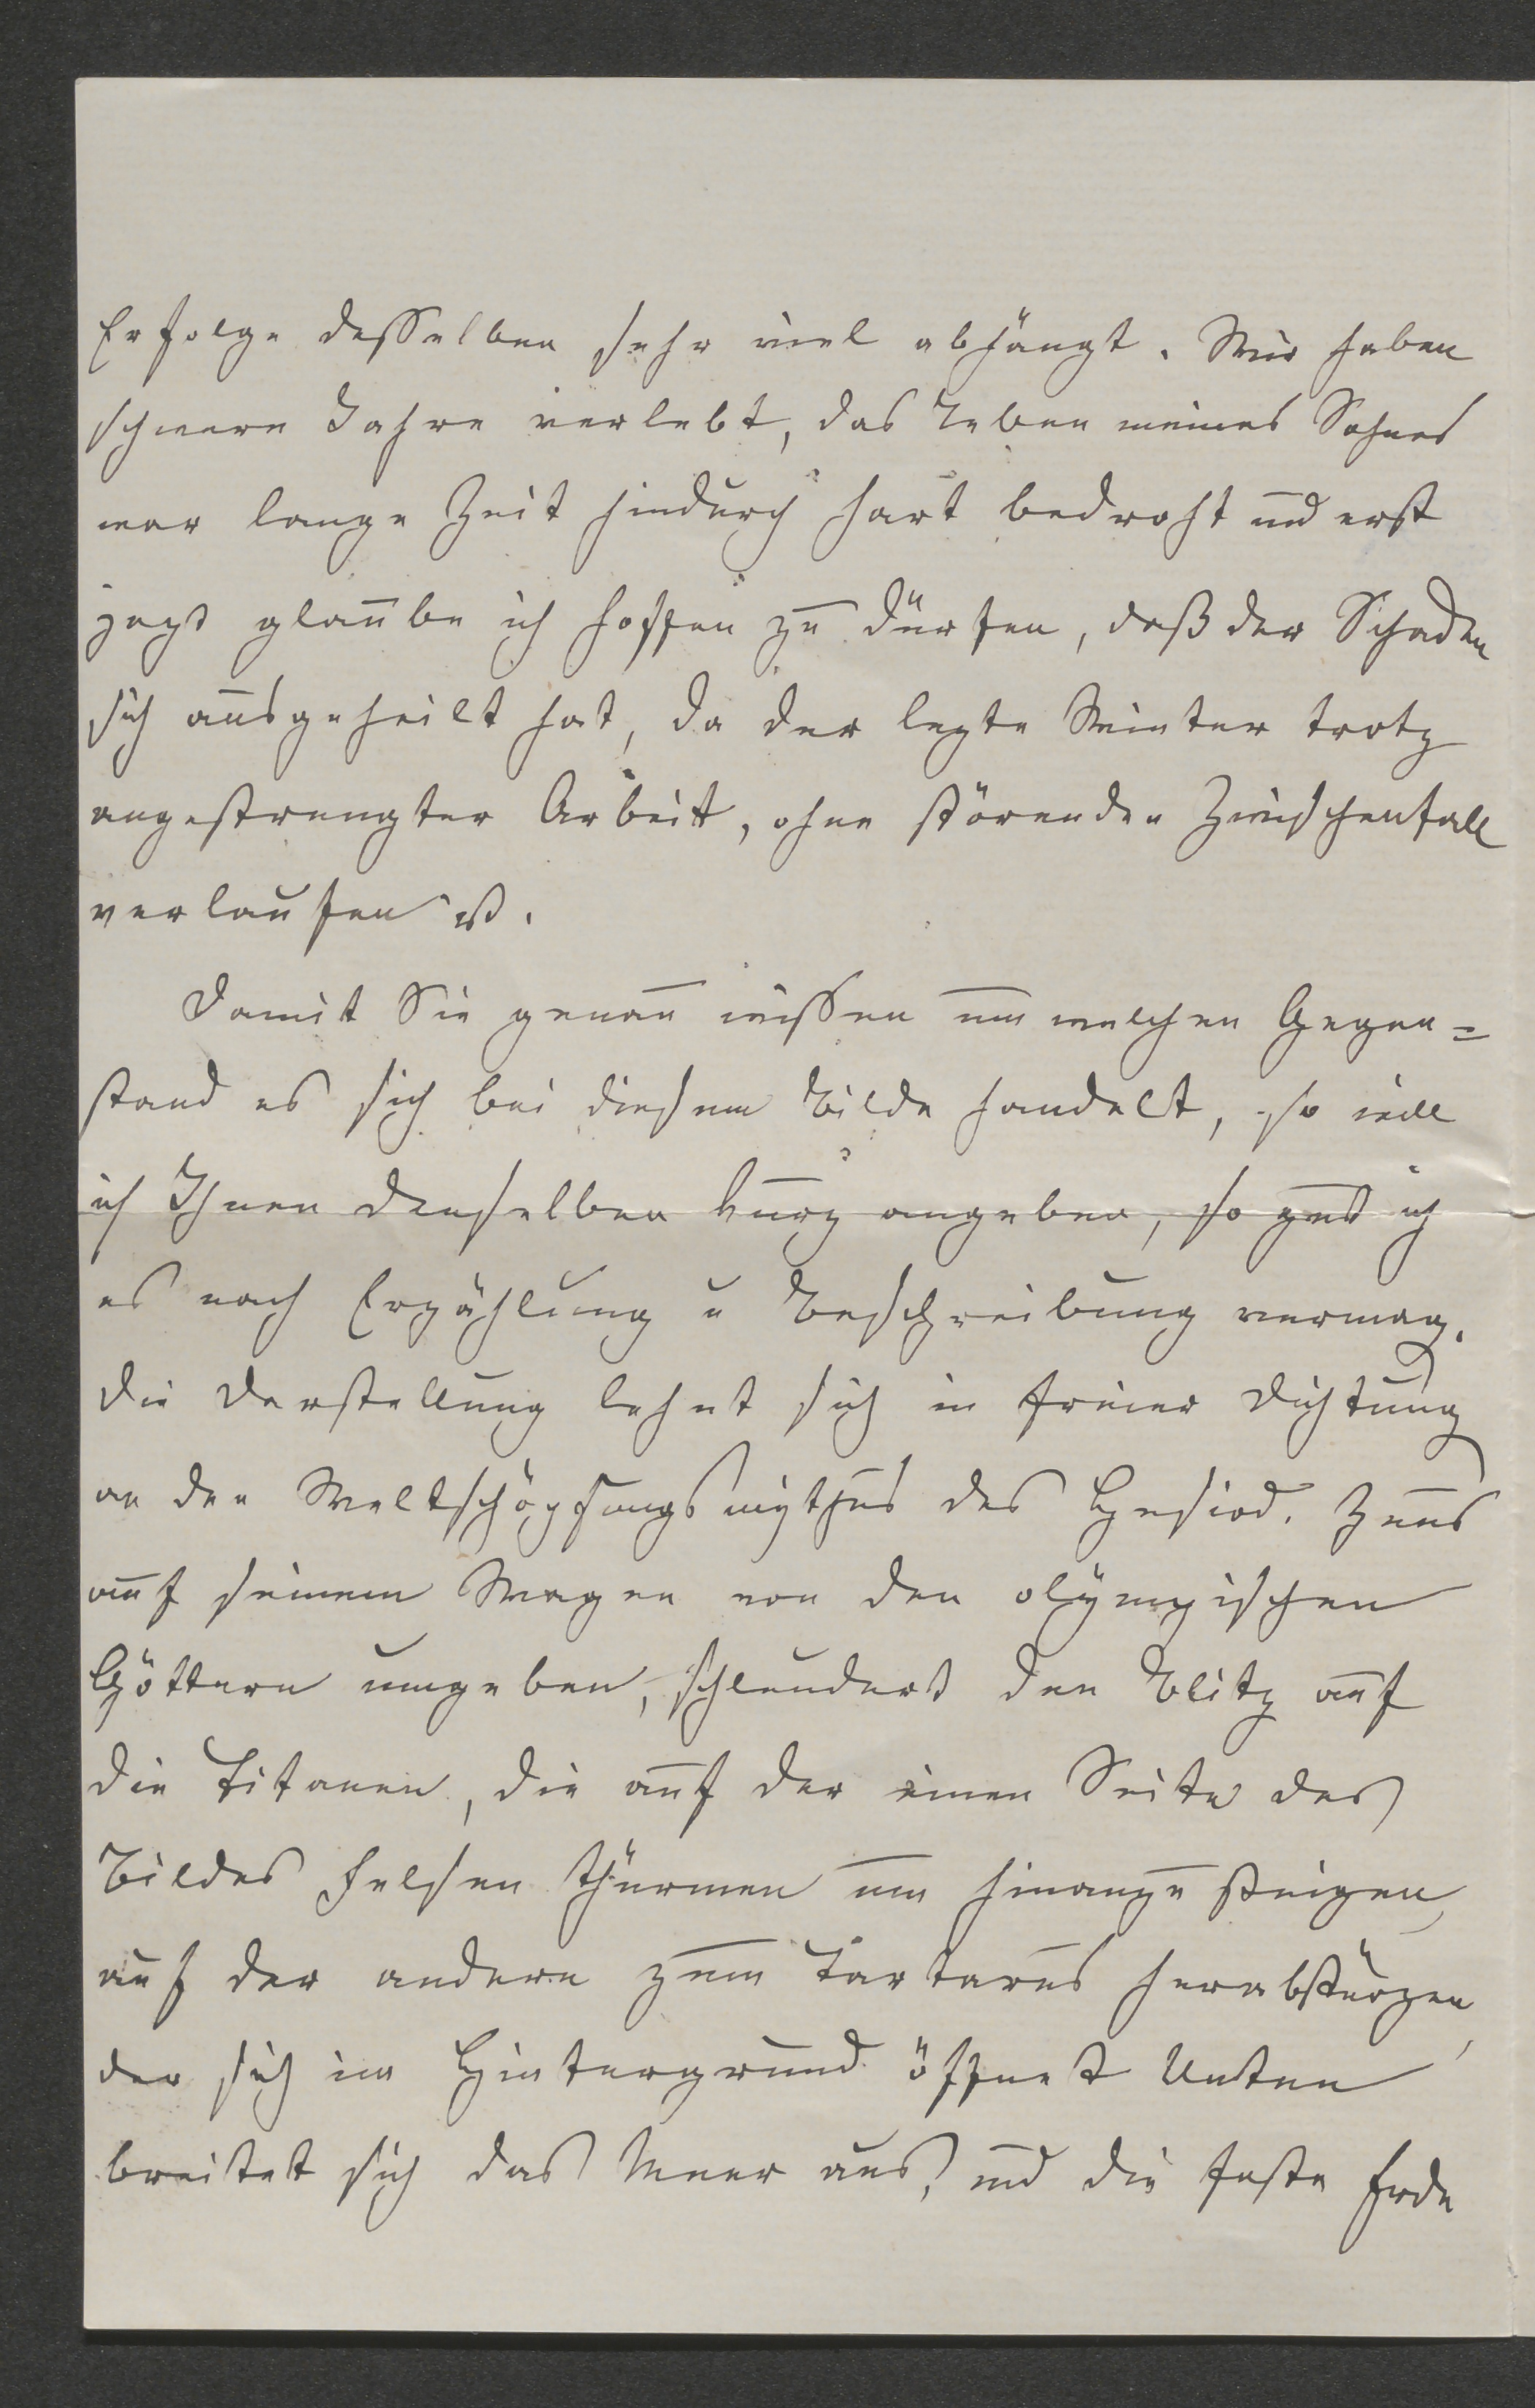 Erfolge desselben sehr viel abhängt. Wir haben
schwere Jahre verlebt, das Leben meines Sohnes
war lange Zeit hindurch hart bedroht und erst
jezt glaube ich hoffen zu dürfen, daß der Schaden
sich ausgeheilt hat, da der lezte Winter trotz
angestrengter Arbeit, ohne störenden Zwischenfall
verlaufen ist.
Damit Sie genau wissen um welchen Gegen=
stand es sich bei diesem Bilde handelt, so will
ich Ihnen denselben kurz angeben, so gut ich
es nach Erzählung u Beschreibung vermag.
Die Darstellung lehnt sich in freier Dichtung
an den Weltschöpfungsmythus des Hesiod. Zeus
auf seinem Wagen von den olympischen
Göttern umgeben, schleudert den Blitz auf
die Titanen, die auf der einen Seite des
Bildes Felsen thürmen um hinanzusteigen,
auf der andern zum Tartarus herabstürzen,
der sich im Hintergrund öffnet Unten
breitet sich das Meer aus, und die feste Erde